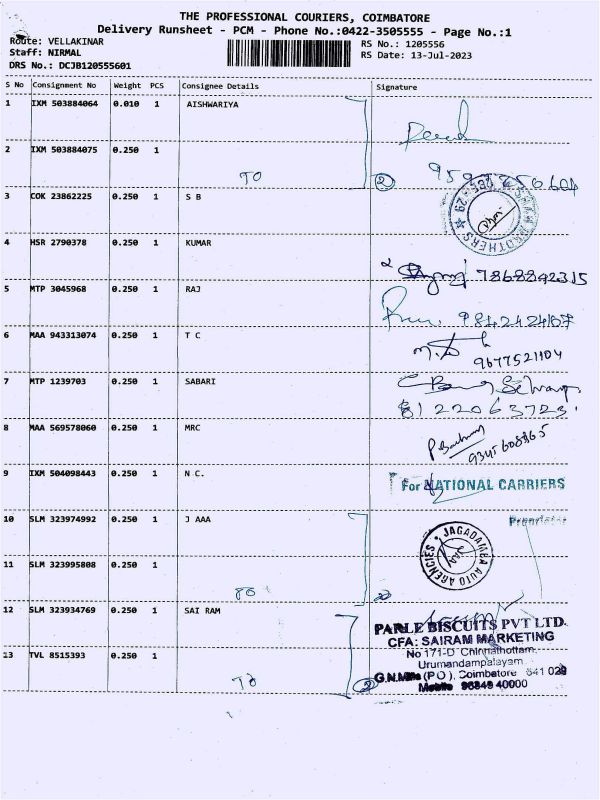 THE PROFESSIONAL COURIERS, COIMBATORE
Delivery Runsheet - PCM - Phone No.:0422-3505555 - Page No.:1
Route: VELLAKINAR
Staff: NIRMAL
DRS No.: DCJB120555601
RS No.: 1205556
RS Date: 13-Jul-2023
S No Consignment No Weight PCS Consignee Details Signature
1 IXM 503884064 0.010 1 AISHWARIYA
2 IXM 503884075 0.250 1
TO 2
3 COK 23862225 0.250 1 S B
BROTHERS
4 HSR 2790378 0.250 1 KUMAR
7868842315
5 MTP 3045968 0.250 1 RAJ
9842424167
6 MAA 943313074 0.250 1 T C
9677521104
7 MTP 1239703 0.250 1 SABARI
8122063723.
8 MAA 569578060 0.250 1 MRC
9345608865
9 IXM 504098443 0.250 1 N C.
For NATIONAL CARRIERS
Proprietor
10 SLM 323974992 0.250 1 J AAA
JAGADAMBA AUTO AGENCIES
11 SLM 323995808 0.250 1
TO 2
12 SLM 323934769 0.250 1 SAI RAM
PARLE BISCUITS PVT LTD.
CFA: SAIRAM MARKETING
No 171-D Chinnathottam,
Urumandampalayam
G.N.Mills (P.O), Coimbatore 641 029
Mobile 98849 40000
13 TVL 8515393 0.250 1
TO 2